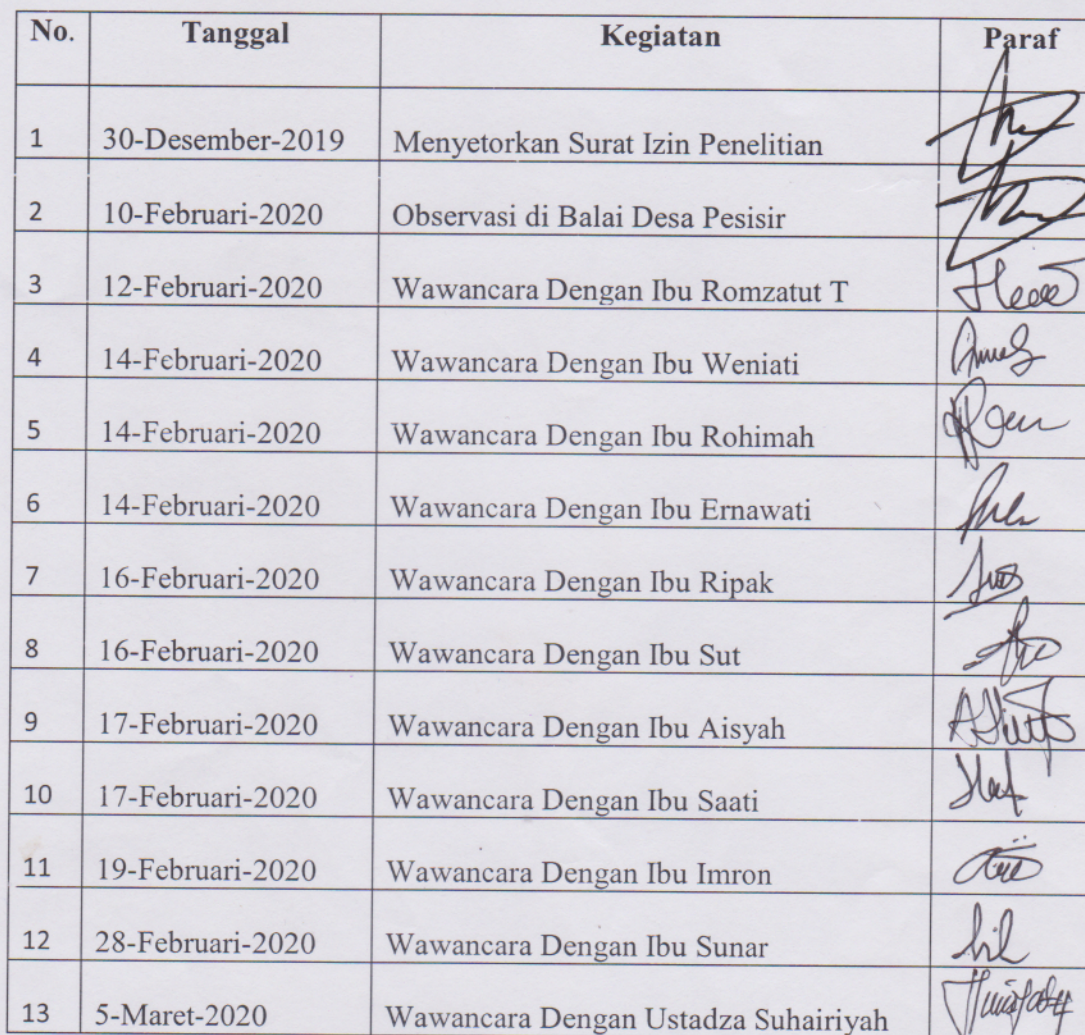 No. Tanggal Kegiatan Paraf
1 30-Desember-2019 Menyetorkan Surat Izin Penelitian
2 10-Februari-2020 Observasi di Balai Desa Pesisir
3 12-Februari-2020 Wawancara Dengan Ibu Romzatut T
4 14-Februari-2020 Wawancara Dengan Ibu Weniati
5 14-Februari-2020 Wawancara Dengan Ibu Rohimah
6 14-Februari-2020 Wawancara Dengan Ibu Ernawati
7 16-Februari-2020 Wawancara Dengan Ibu Ripak
8 16-Februari-2020 Wawancara Dengan Ibu Sut
9 17-Februari-2020 Wawancara Dengan Ibu Aisyah
10 17-Februari-2020 Wawancara Dengan Ibu Saati
11 19-Februari-2020 Wawancara Dengan Ibu Imron
12 28-Februari-2020 Wawancara Dengan Ibu Sunar
13 5-Maret-2020 Wawancara Dengan Ustadza Suhairiyah